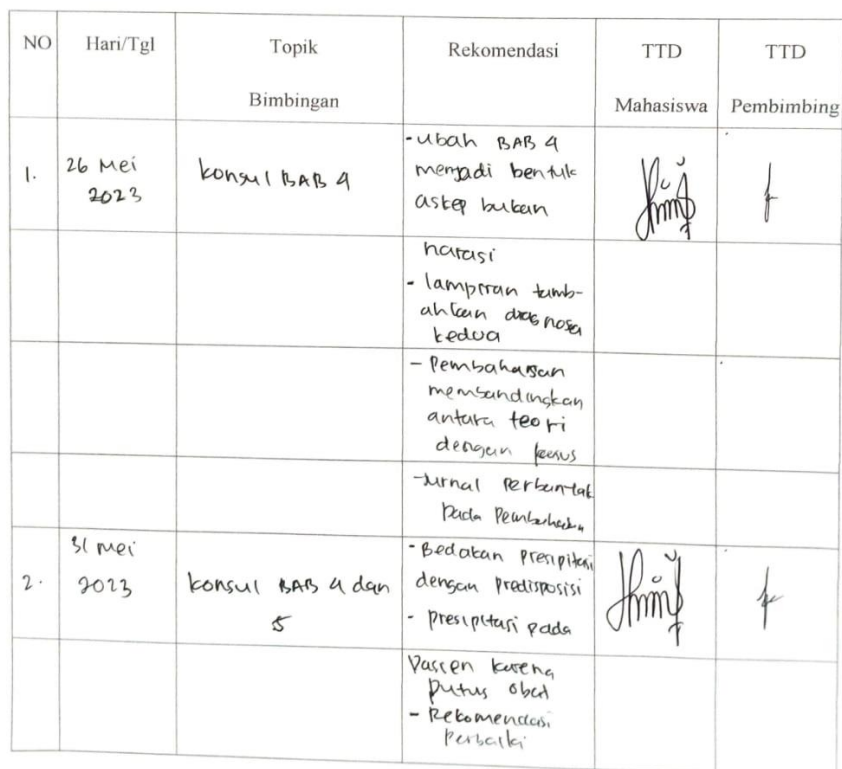 NO Hari/Tgl Topik Bimbingan Rekomendasi TTD Mahasiswa TTD Pembimbing
1. 26 Mei 2023 konsul BAB 4
- Ubah BAB 4
menjadi bentuk
askep bukan
narasi
- lampiran tamb-
ahkan diagnosa
kedua
- Pembahasan
membandingkan
antara teori
dengan kasus
- Jurnal perbanyak
pada Pembahasan
2. 31 Mei 2023 konsul BAB 4 dan 5
- Bedakan presipitasi
dengan predisposisi
- presipitasi pada
Pasien karena
putus obat
- Rekomendasi
perbaiki